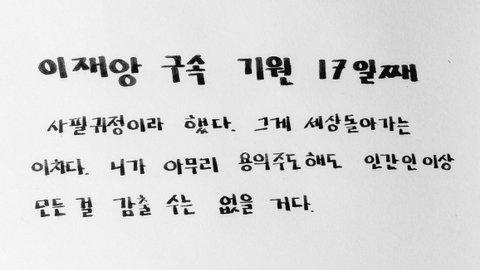 이재앙 구속 기원 17일째
사필귀정이라 했다. 그게 세상돌아가는
이치다. 니가 아무리 용의주도해도 인간인이상
모든걸 감출 수는 없을 거다.